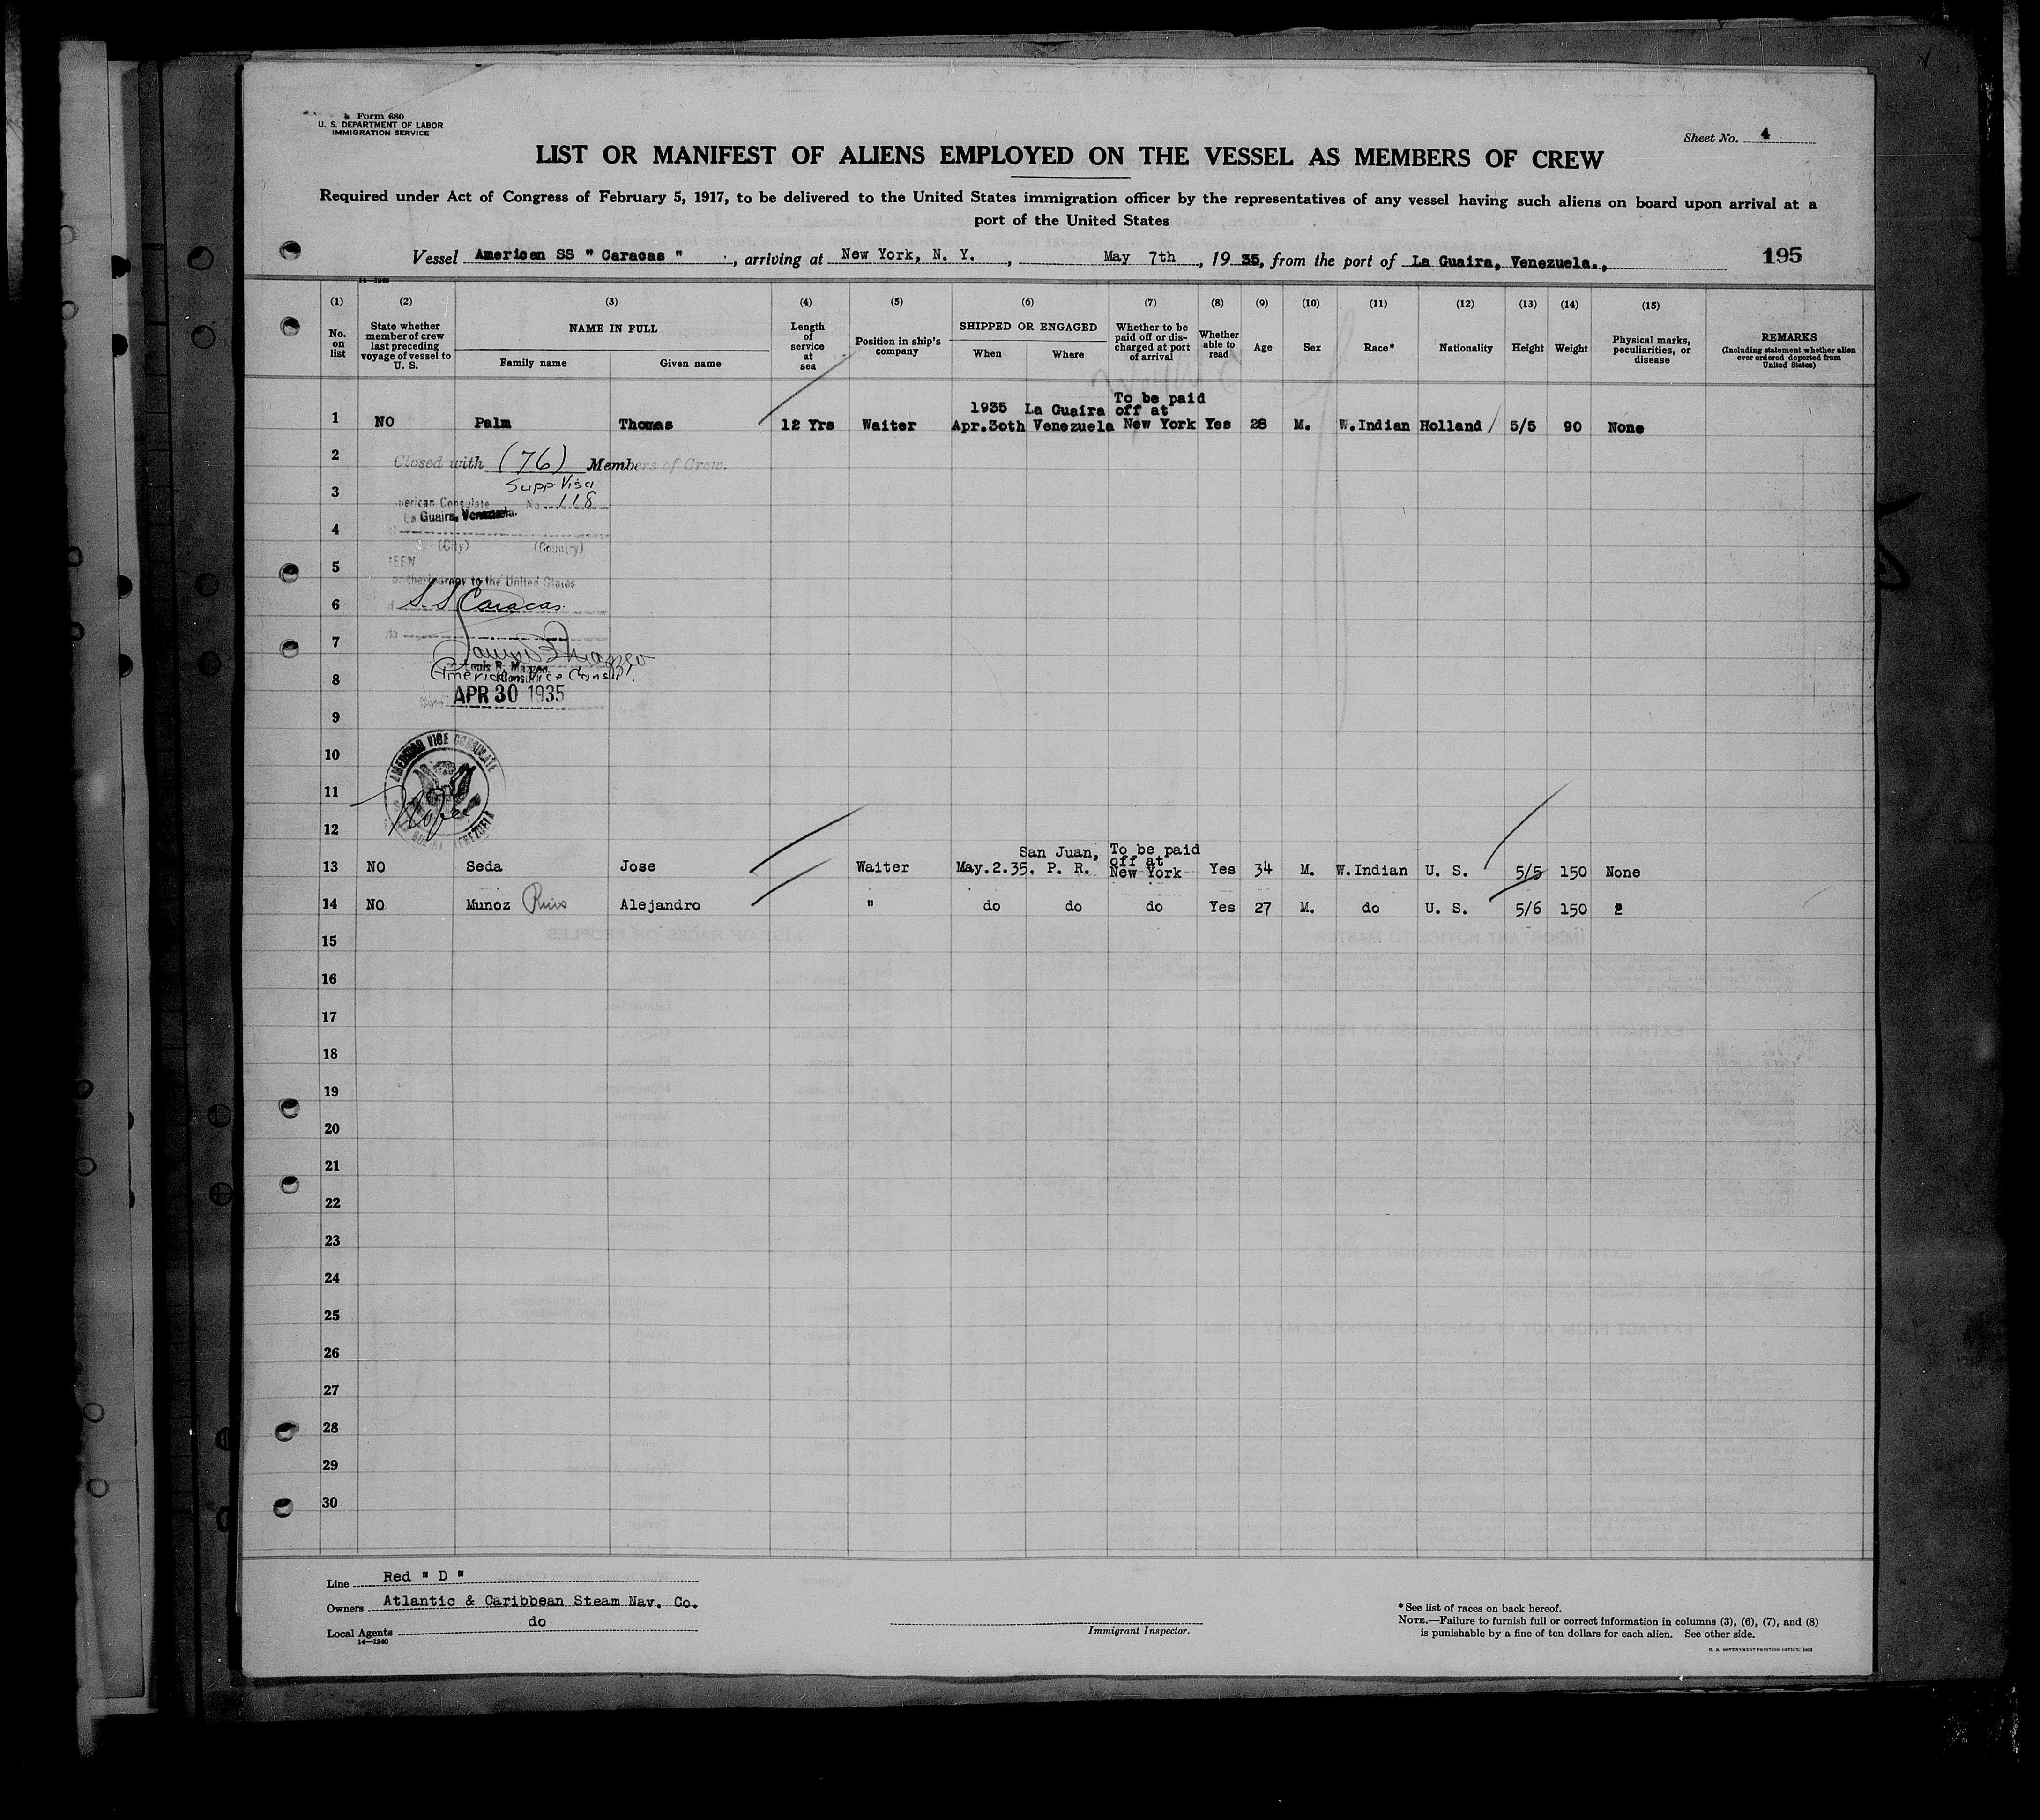 Form 680
U. S. DEPARTMENT OF LABOR
IMMIGRATION SERVICE
Sheet No. 4
LIST OR MANIFEST OF ALIENS EMPLOYED ON THE VESSEL AS MEMBERS OF CREW
Required under Act of Congress of February 5, 1917, to be delivered to the United States immigration officer by the representatives of any vessel having such aliens on board upon arrival at a
port of the United States
Vessel American SS " Caracas " , arriving at New York, N. Y. , May 7th , 19 35, from the port of La Guaira, Venezuela.,
195
14—1240
(1) (2) (3) (4) (5) (6) (7) (8) (9) (10) (11) (12) (13) (14) (15)
No. on list
State whether member of crew last preceding voyage of vessel to U. S.
NAME IN FULL
Family name Given name
Length of service at sea
Position in ship's company
SHIPPED OR ENGAGED
When Where
Whether to be paid off or discharged at port of arrival
Whether able to read
Age
Sex
Race*
Nationality
Height
Weight
Physical marks, peculiarities, or disease
REMARKS
(Including statement whether alien ever ordered deported from United States)
1935 La Guaira To be paid off at
1 NO Palm Thomas 12 Yrs Waiter Apr.30th Venezuela New York Yes 28 M. W.Indian Holland 5/5 90 None
2 Closed with (76) Members of Crew.
Supp Visa
3 American Consulate No. 118
La Guaira, Venezuela.
4
(City) (Country)
5 SEEN
to the United States
6 S.S Caracas
7
8 American Vice Consul.
APR 30 1935
9
10 AMERICAN VICE CONSULATE
11
12
San Juan, To be paid off at
13 NO Seda Jose Waiter May.2.35. P. R. New York Yes 34 M. W.Indian U. S. 5/5 150 None
14 NO Munoz Alejandro " do do do Yes 27 M. do U. S. 5/6 150
15
16
17
18
19
20
21
22
23
24
25
26
27
28
29
30
Line Red " D "
Owners Atlantic & Caribbean Steam Nav. Co.
Local Agents do
14—1240
Immigrant Inspector.
*See list of races on back hereof.
NOTE.—Failure to furnish full or correct information in columns (3), (6), (7), and (8)
is punishable by a fine of ten dollars for each alien. See other side.